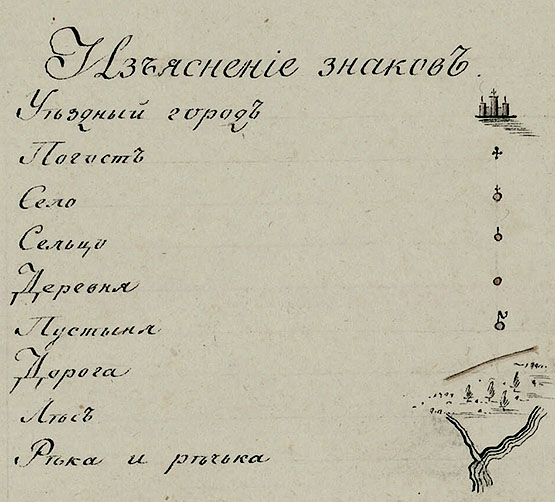 Изъясненіе знаковъ.
Уѣздный городъ
Погостъ
Село
Сельцо
Деревня
Пустыня
Дорога
Лѣсъ
Рѣка и рѣчька